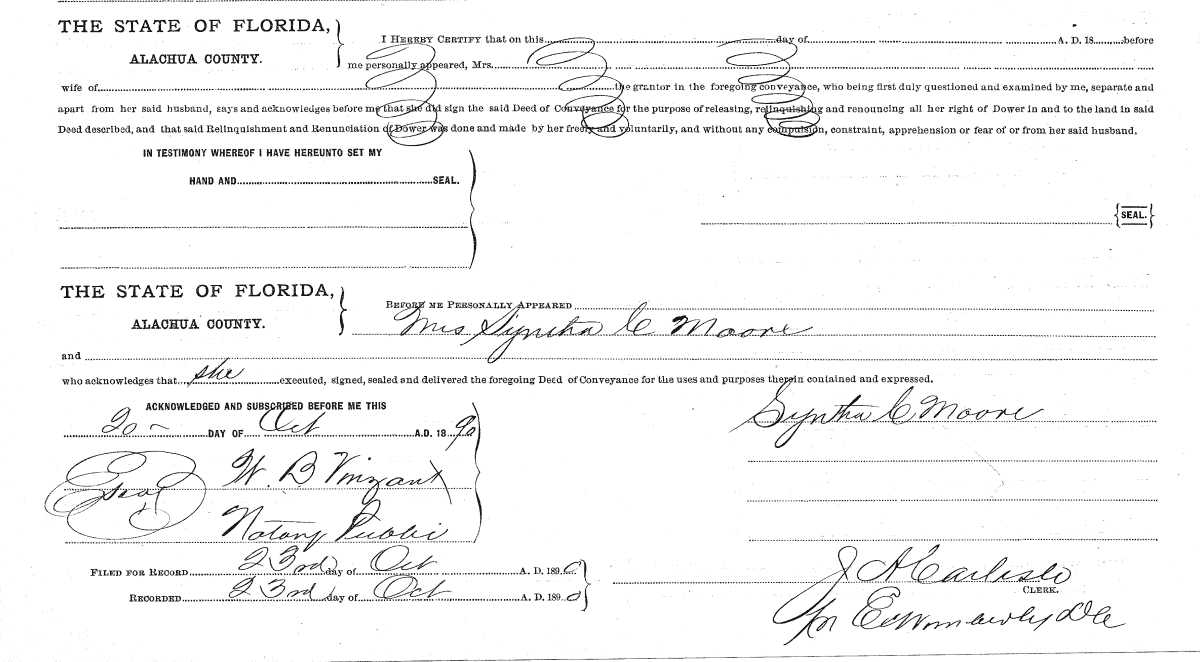 THE STATE OF FLORIDA,
ALACHUA COUNTY.
I HEREBY CERTIFY that on this day of A. D. 18 before
me personally appeared, Mrs.
wife of the grantor in the foregoing conveyance, who being first duly questioned and examined by me, separate and
apart from her said husband, says and acknowledges before me that she did sign the said Deed of Conveyance for the purpose of releasing, relinquishing and renouncing all her right of Dower in and to the land in said
Deed described, and that said Relinquishment and Renunciation of Dower was done and made by her freely and voluntarily, and without any compulsion, constraint, apprehension or fear of or from her said husband.
IN TESTIMONY WHEREOF I HAVE HEREUNTO SET MY
HAND AND SEAL.
{SEAL.}
THE STATE OF FLORIDA,
ALACHUA COUNTY.
BEFORE ME PERSONALLY APPEARED
Mrs Syntha C Moore
and
who acknowledges that she executed, signed, sealed and delivered the foregoing Deed of Conveyance for the uses and purposes therein contained and expressed.
ACKNOWLEDGED AND SUBSCRIBED BEFORE ME THIS
20 - DAY OF Oct A.D. 18 90
Syntha C Moore
Seal W. B Vinzant
Notary Public
FILED FOR RECORD 23rd day of Oct A. D. 189 0
RECORDED 23rd day of Oct A. D. 189 0
J A Carlisle
CLERK.
E Wimberly DC